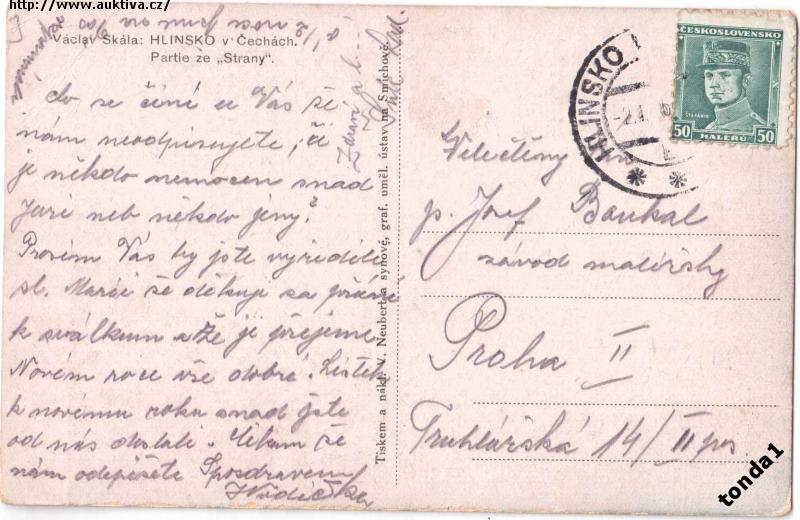 http://www.auktiva.cz/
Václav Skála: HLINSKO v Čechách.
Partie ze „Strany“.
co se činé u Vás že
nám neodpisujete, či
je někdo nemocen snad
Jurí neb někdo jiný?
Prosím Vás by jste vyřídili
sl. Marii že děkuji za přání
k svátkum a že ji přejeme
Novém roce vše dobré. Lístek
k novému roku snad jste
od nás dostali. Čekám že
nám odepíšete S pozdravem
Zdraví
Tiskem a nákl. V. Neubert a synové, graf. uměl. ústav na Smíchově.
HLINSKO
ČESKOSLOVENSKO
ŠTEFÁNIK
50 HALÉŘŮ 50
Velectěný pan
p. Josef Boukal
závod malířský
Praha II
Truhlářská 14/II pos.
tonda1